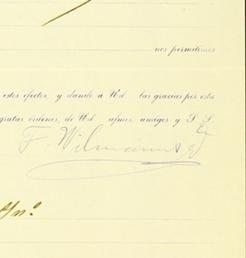 nos permitimos
estos efectos, y dando á Ud. las gracias por esta
gratas órdenes, de Ud. afmos. amigos y S. S.
F. Wilmanns